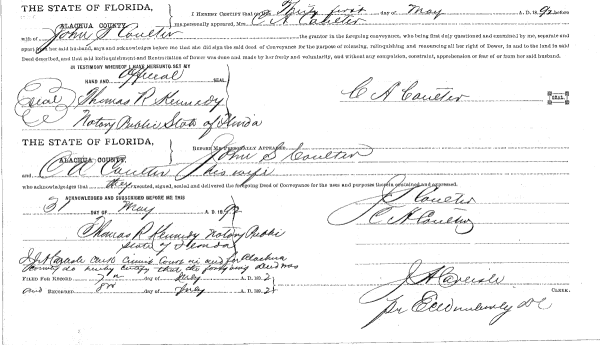 THE STATE OF FLORIDA,
ALACHUA COUNTY.
I HEREBY CERTIFY that on this Thirty first day of May A. D. 1892 before
me personally appeared, Mrs. C A Coulter
wife of John S Coulter the grantor in the foregoing conveyance, who being first duly questioned and examined by me, separate and
apart from her said husband, says and acknowledges before me that she did sign the said deed of Conveyance for the purpose of releasing, relinquishing and renouncing all her right of Dower, in and to the land in said
Deed described, and that said Relinquishment and Renunciation of Dower was done and made by her freely and voluntarily, and without any compulsion, constraint, apprehension or fear of or from her said husband.
IN TESTIMONY WHEREOF I HAVE HEREUNTO SET MY
HAND AND Official SEAL
Seal Thomas R Kennedy
Notary Public State of Florida
C A Coulter SEAL.
THE STATE OF FLORIDA,
ALACHUA COUNTY.
BEFORE ME PERSONALLY APPEARED John S Coulter
and, C A Coulter his wife
who acknowledges that they executed, signed, sealed and delivered the foregoing Deed of Conveyance for the uses and purposes therein contained and expressed.
ACKNOWLEDGED AND SUBSCRIBED BEFORE ME THIS
31 DAY OF May A. D. 1892
J S Coulter
C A Coulter
Thomas R Kennedy Notary Public
State of Florida
I J A Carlisle Clerk Circuit Court in and for Alachua
County do hereby certify that the foregoing deed was
FILED FOR RECORD day of July A. D. 189 2
and RECORDED day of July A. D. 189 2
J A Carlisle CLERK.
pr D C